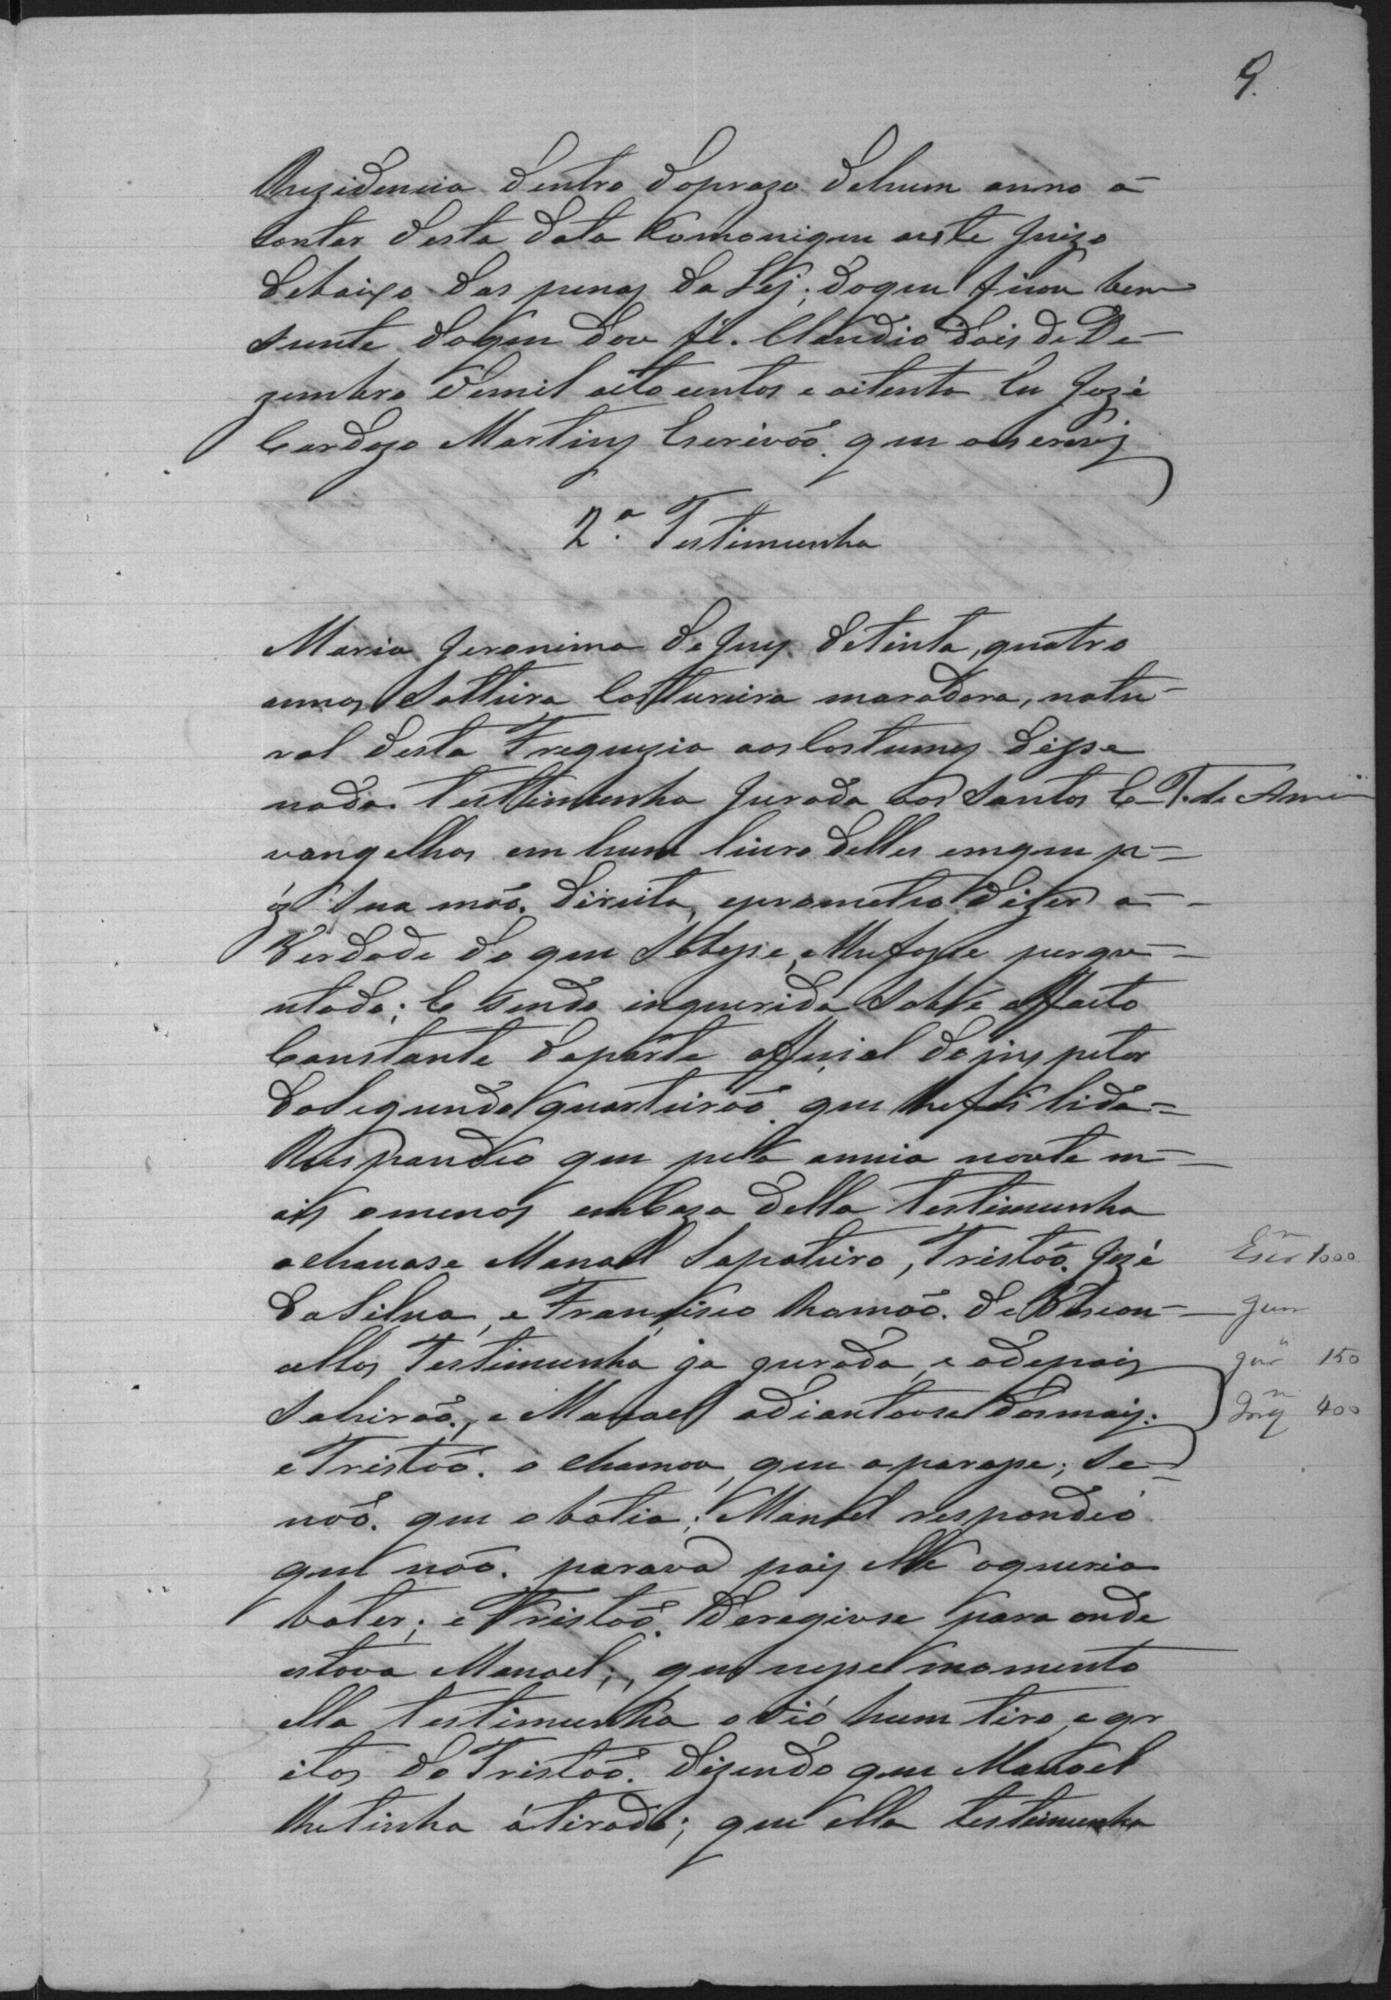 9.
Rezidencia dentro do prazo de hum anno a-
contar desta data Comonique a este Juizo
debaixo das penas da Lej; do que ficou bem
siente do que dou fé. Claudio dois de De-
zembro de mil oito centos e oitenta Eu Jozé
Cardozo Martins Escrivaõ. que o escrevj
2.ª Testimunha
Maria Jeronima de Jus. de tinta, quatro
annos Solteira Costureira moradora, natu-
ral desta Freguezia aos Costumes disse
nada. testtimunha Jurada aos Santos E- T. de Am
vangelhos em hum livro delles em que p-
óz sua maõ. direita, e prometeo dizer a-
Verdade do que Sobesse, e lhe fosse pergu-
ntado; E sendo inquerida Sobre o ffacto
Constante da parte official do inspetor
do Segundo quarteiraõ. que lhe foi lida-
Respondeo que pela a meia noute m-
ais o menos em Caza della testimunha
achavase Manoel Sapateiro, Tristaõ. Jozé
da Silva, e Francisco Ramaõ. de Vascon-
cellos Testimunha ja jurada, e adepois
Sahiraõ., e Manoel adiantouse dos mais.
e Tristaõ. o chamou, que o parasse; Se-
naõ. que o batia; Manoel respondeo
que naõ. parava pois elle o queria
bater; e Tristaõ. deregiuse para onde
estava Manoel;, que nesse momento
ella testimunha ovió hum tiro, e gr
itos do Tristaõ. dizendo que Manoel
lhe tinha átirado; que ella testimunha
Escr 1000
Jur 150
Inq 400